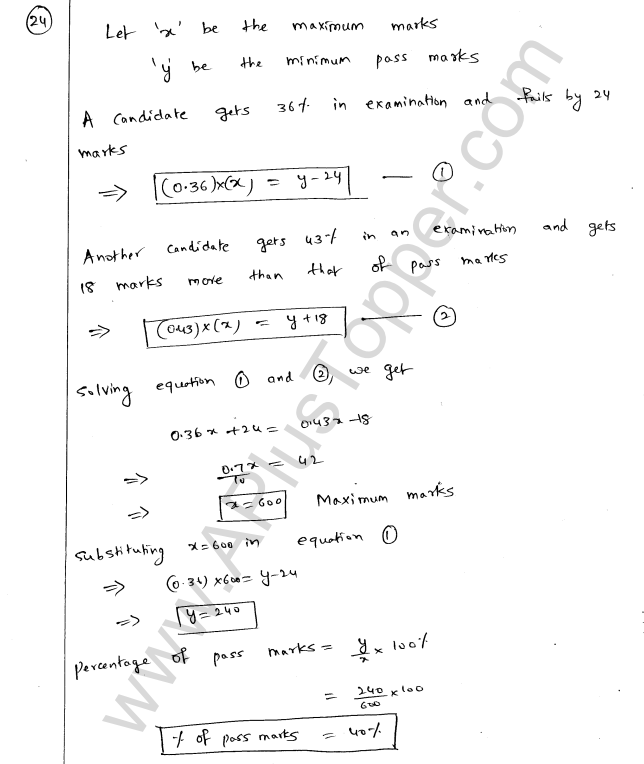 24
Let 'x' be the maximum marks
'y' be the minimum pass marks
A candidate gets 36% in examination and fails by 24
marks
=> (0.36)x(x) = y-24 — ①
Another candidate gets 43% in an examination and gets
18 marks more than that of pass marks
=> (0.43)x(x) = y+18 — ②
Solving equation ① and ②, we get
0.36x +24 = 0.43x -18
=> 0.7x/10 = 42
=> x=600 Maximum marks
substituting x=600 in equation ①
=> (0.36) x600= y-24
=> y=240
percentage of pass marks = y/x x 100%
= 240/600 x100
% of pass marks = 40%
www.APlusTopper.com